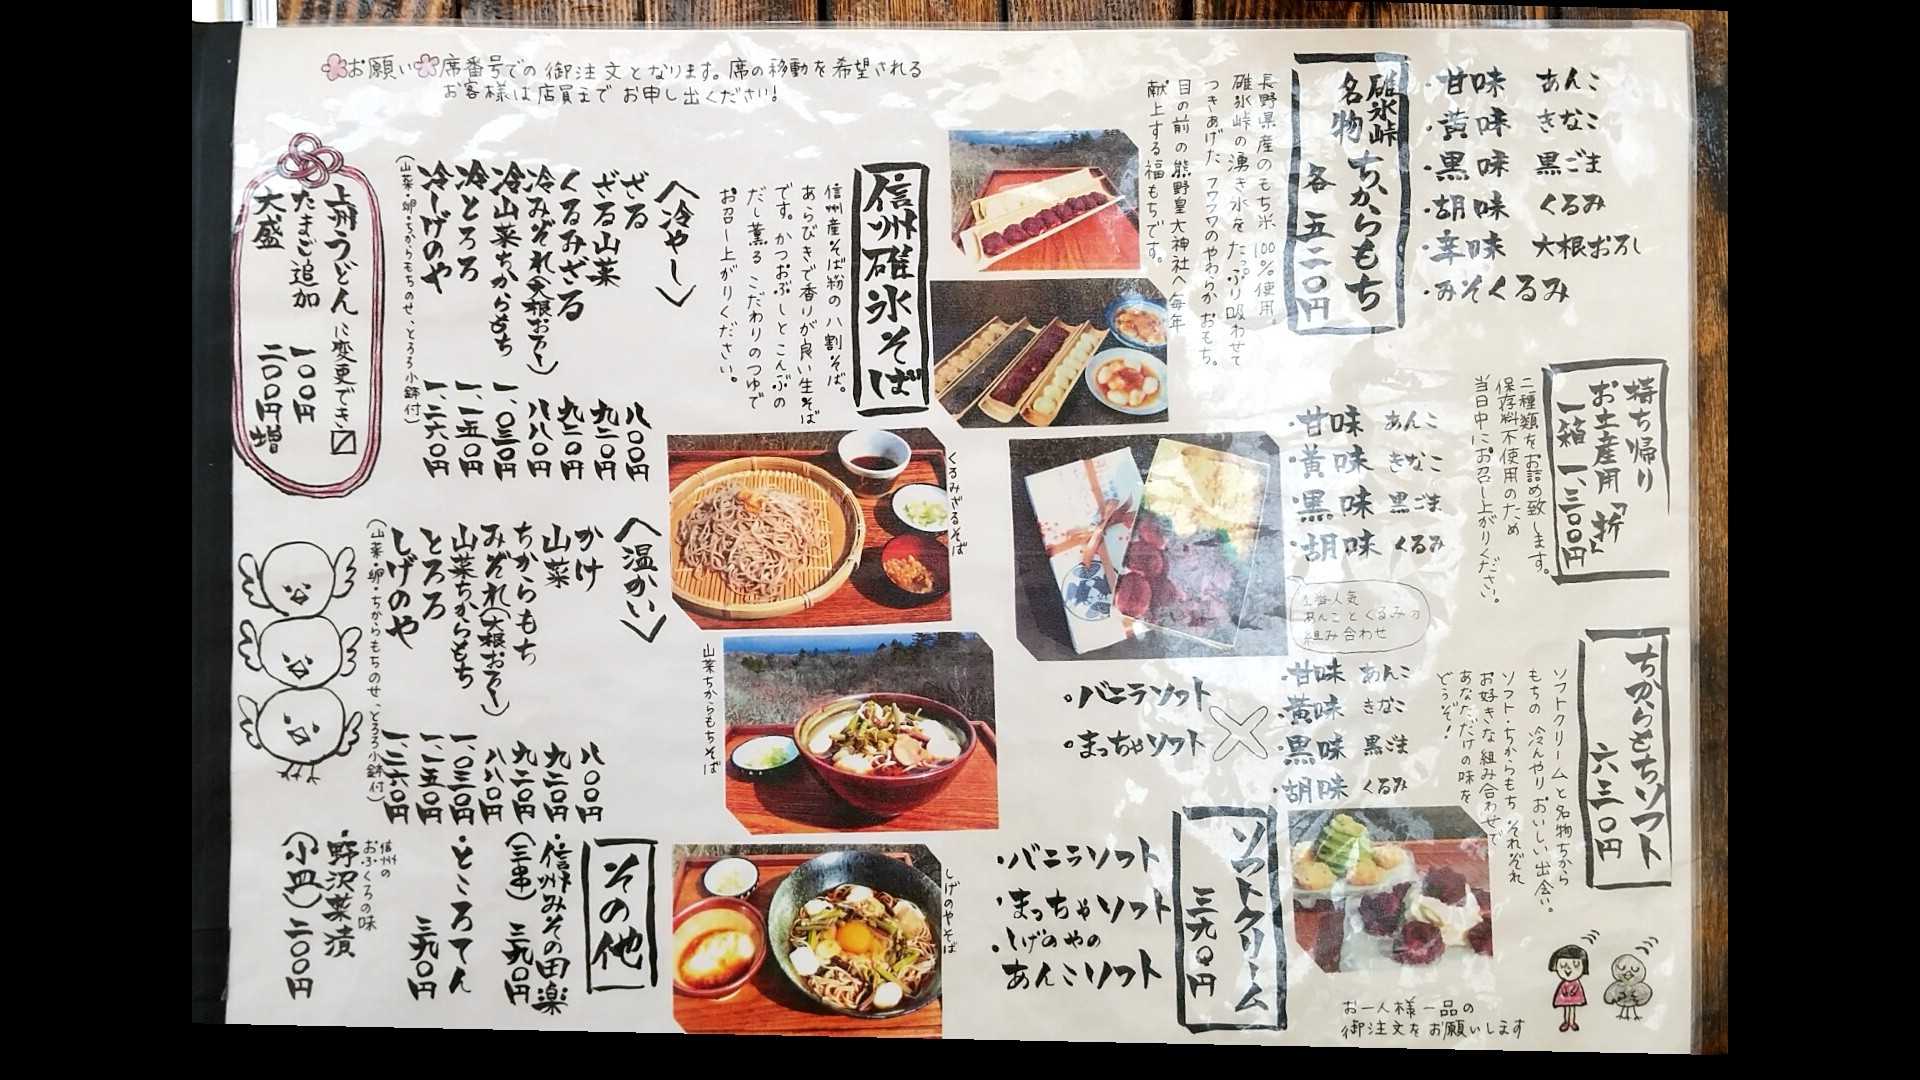 お願い 席番号での御注文となります。席の移動を希望される
お客様は店員までお申し出ください!
碓氷峠
名物 ちからもち
各 五二〇円
・甘味 あんこ
・黄味 きなこ
・黒味 黒ごま
・胡味 くるみ
・辛味 大根おろし
・みそくるみ
長野県産のもち米100%使用。
碓氷峠の湧き水をたっぷり吸わせて
つきあげたフワフワのやわらかおもち。
目の前の熊野皇大神社へ毎年
献上する福もちです。
持ち帰り
お土産用「折」
一箱 一、三〇〇円
二種類をお詰め致します。
保存料不使用のため
当日中にお召し上がりください。
・甘味 あんこ
・黄味 きなこ
・黒味 黒ごま
・胡味 くるみ
1番人気
あんことくるみの
組み合わせ
ちからもちソフト
六三〇円
ソフトクリームと名物ちから
もちの冷んやりおいしい出会い。
ソフト・ちからもちそれぞれ
お好きな組み合わせで
あなただけの味を
どうぞ!
・バニラソフト
・まっちゃソフト
×
・甘味 あんこ
・黄味 きなこ
・黒味 黒ごま
・胡味 くるみ
ソフトクリーム
三九〇円
・バニラソフト
・まっちゃソフト
・しげのやの
あんこソフト
お一人様一品の
御注文をお願いします
信州碓氷そば
信州産そば粉の八割そば。
あらびきで香りが良い生そば
です。かつおぶしとこんぶの
だし薫るこだわりのつゆで
お召し上がりください。
〈冷やし〉
ざる 八〇〇円
ざる山菜 九二〇円
くるみざる 九二〇円
冷みぞれ(大根おろし) 八八〇円
冷山菜ちからもち 一、〇三〇円
冷とろろ 一、一五〇円
冷しげのや 一、二六〇円
(山菜・卵・ちからもちのせ、とろろ小鉢付)
上州うどんに変更でき〼
たまご追加 一〇〇円
大盛 二〇〇円増
くるみざるそば
〈温かい〉
かけ 八〇〇円
山菜 九二〇円
ちからもち 九二〇円
みぞれ(大根おろし) 八八〇円
山菜ちからもち 一、〇三〇円
とろろ 一、一五〇円
しげのや 一、二六〇円
(山菜・卵・ちからもちのせ、とろろ小鉢付)
山菜ちからもちそば
しげのやそば
その他
・信州みその田楽
(三串) 三九〇円
・ところてん
三九〇円
信州の
おふくろの味
・野沢菜漬
(小皿) 二〇〇円